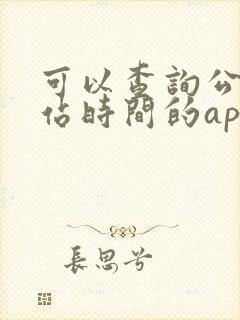 可以查詢公
佔時間的ap
長思兮